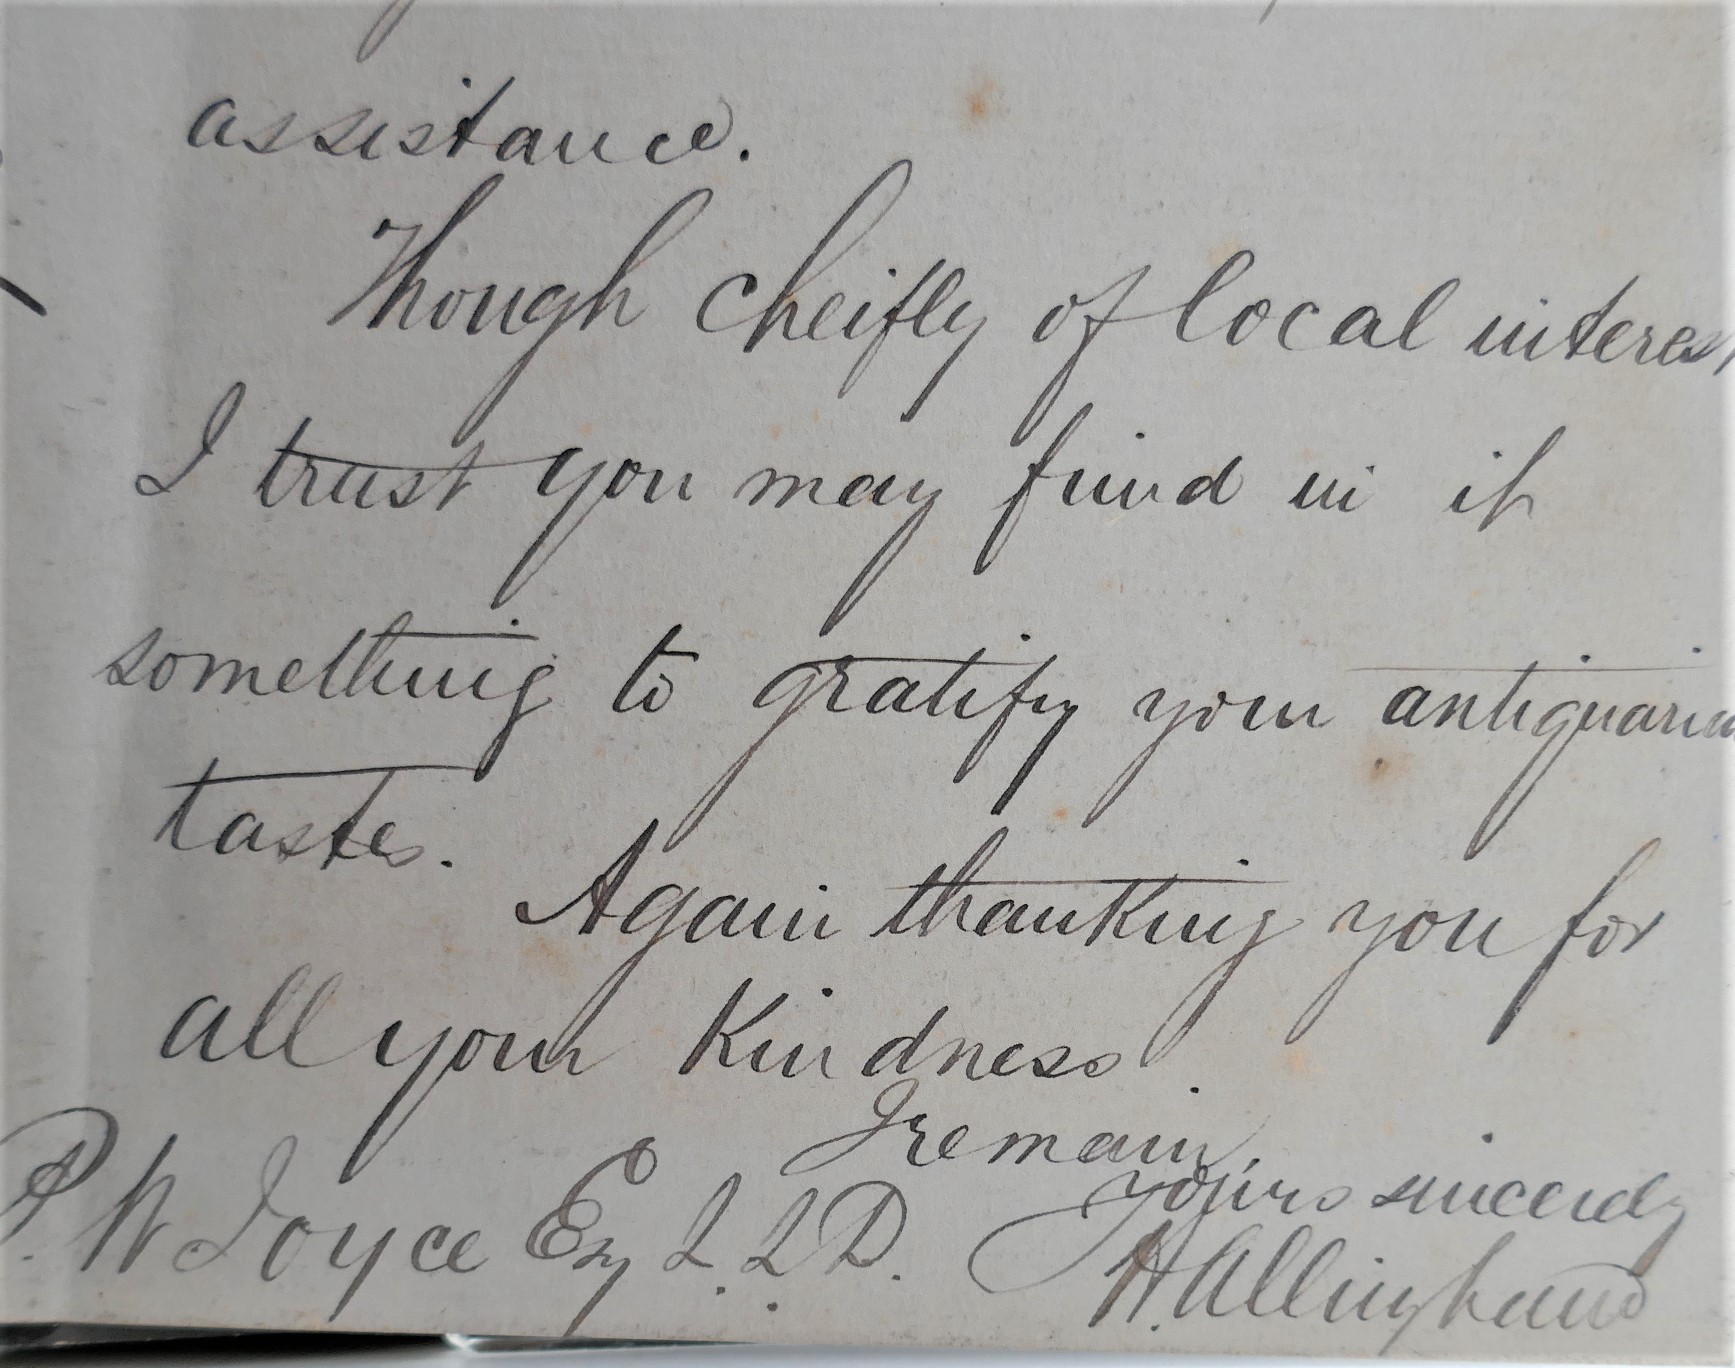 assistance.
Though cheifly of local interest
I trust you may find in it
something to gratify your antiquarian
tastes.
Again thanking you for
all your kindness.
I remain
yours sincerely
P. W Joyce Esq L.L.D.
H. Allingham